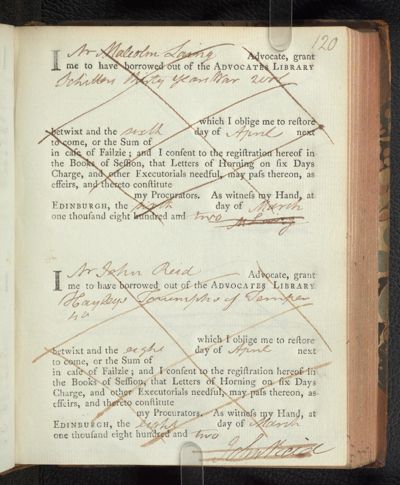 120
I Mr Malcolm Laing Advocate, grant
me to have borrowed out of the ADVOCATES LIBRARY
Schillers thirty years War 2 vol
which I oblige me to reſtore
betwixt and the sixth day of April next
to come, or the Sum of
in caſe of Failzie; and I conſent to the regiſtration hereof in
the Books of Seſſion, that Letters of Horning on ſix Days
Charge, and other Executorials needful, may paſs thereon, as
effeirs, and thereto conſtitute
my Procurators. As witneſs my Hand, at
EDINBURGH, the sixth day of March
one thouſand eight hundred and two
M Laing
I Mr John Reid Advocate, grant
me to have borrowed out of the ADVOCATES LIBRARY
Hayleys Triumphs of Temper
which I oblige me to reſtore
betwixt and the eight day of April next
to come, or the Sum of
in caſe of Failzie; and I conſent to the regiſtration hereof in
the Books of Seſſion, that Letters of Horning on ſix Days
Charge, and other Executorials needful, may paſs thereon, as
effeirs, and thereto conſtitute
my Procurators. As witneſs my Hand, at
EDINBURGH, the eight day of March
one thouſand eight hundred and two
John Reid